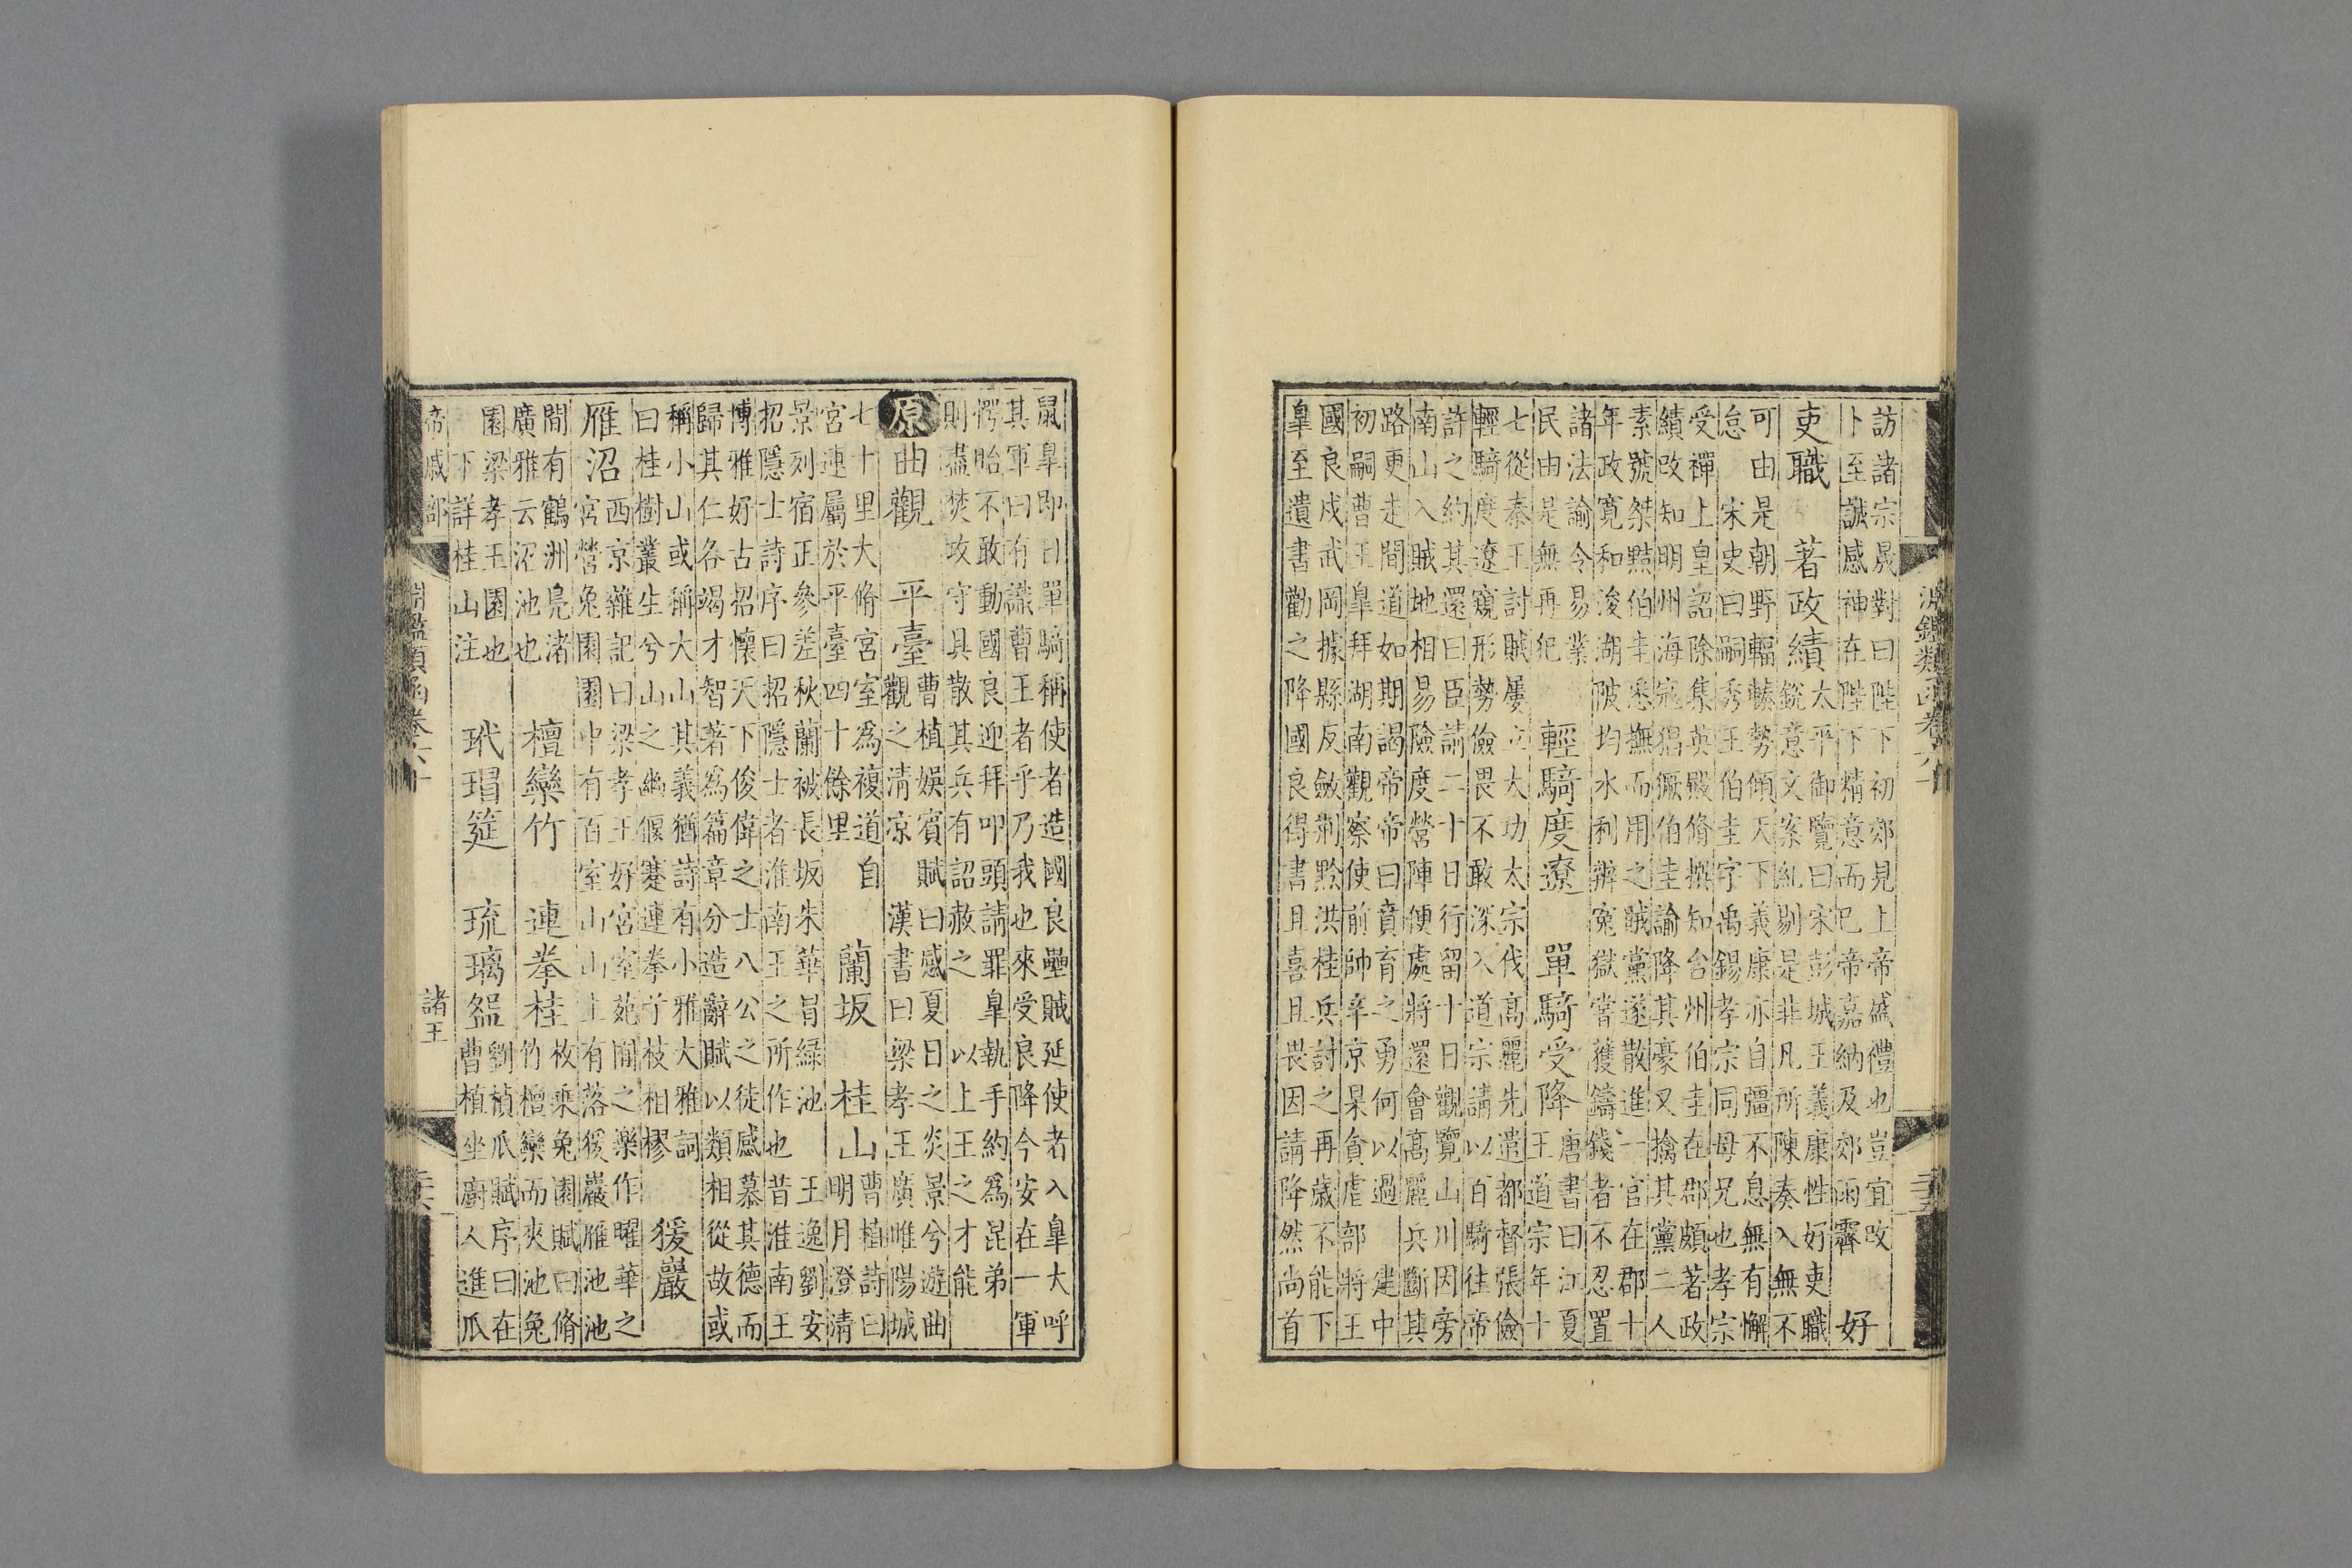 訪諸宗晟對曰陛下初郊見上帝盛禮也豈宜改
卜至誠感神在陛下精意而已帝嘉納及郊雨霽
好
吏職　著政績
太平御覽曰宋彭城王義康性好吏職
銳意文案糺剔是非凡所陳奏入無不
可由是朝野輻輳勢傾天下義康亦自彊不息無有懈
怠　宋史曰嗣秀王伯圭字禹錫孝宗同母兄也孝宗
受禪上皇詔除集英殿脩撰知台州伯圭在郡頗著政
績改知明州海寇猖獗伯圭諭降其豪又擒其黨二人
素號桀黠伯圭悉撫而用之賊黨遂散進一官在郡十
年政寬和浚湖陂均水利辨冤獄嘗獲鑄錢者不忍置
諸法諭令易業
民由是無再犯
輕騎度遼　單騎受降
唐書曰江夏
王道宗年十
七從秦王討賊屢立大功太宗伐高麗先遣都督張儉
輕騎度遼窺形勢儉畏不敢深入道宗請以百騎往帝
許之約其還曰臣請二十日行留十日觀覽山川因旁
南山入賊地相易險度營陣便處將還會高麗兵斷其
路更走間道如期謁帝帝曰賁育之勇何以過　建中
初嗣曹王皐拜湖南觀察使前帥辛京杲貪虐部將王
國良戍武岡據縣反斂荆黔洪桂兵討之再歲不能下
皐至遺書勸之降國良得書且喜且畏因請降然尚首
鼠皐即日單騎稱使者造國良壘賊延使者入皐大呼
其軍曰有識曹王者乎乃我也來受良降今安在一軍
愕眙不敢動國良迎拜叩頭請罪皐執手約為昆弟
則盡焚攻守具散其兵有詔赦之　以上王之才能
原曲觀　平臺
曹植娛賓賦曰感夏日之炎景兮遊曲
觀之清凉　漢書曰梁孝王廣睢陽城
七十里大脩宮室為複道自
宮連屬於平臺四十餘里
蘭坂　桂山
曹植詩曰
明月澄清
景列宿正參差秋蘭被長坂朱華冒緑池　王逸劉安
招隱士詩序曰招隱士者淮南王之所作也昔淮南王
博雅好古招懷天下俊偉之士八公之徒咸慕其德而
歸其仁各竭才智著為篇章分造辭賦以類相從故或
稱小山或稱大山其義猶詩有小雅大雅詞
曰桂樹叢生兮山之幽偃蹇連拳兮枝相樛
猨巖
雁沼
西京雜記曰梁孝王好宮室苑囿之樂作曜華之
宮營兔園園中有百室山山上有落猨巖雁池池
間有鶴洲鳧渚
廣雅云沼池也
檀欒竹　連拳桂
枚乘兔園賦曰脩
竹檀欒而夾池兔
園梁孝王園也
下詳桂山注
玳瑁筵　琉璃盌
劉楨瓜賦序曰在
曹植坐廚人進瓜
帝戚部
淵鑑類函卷六十
諸王